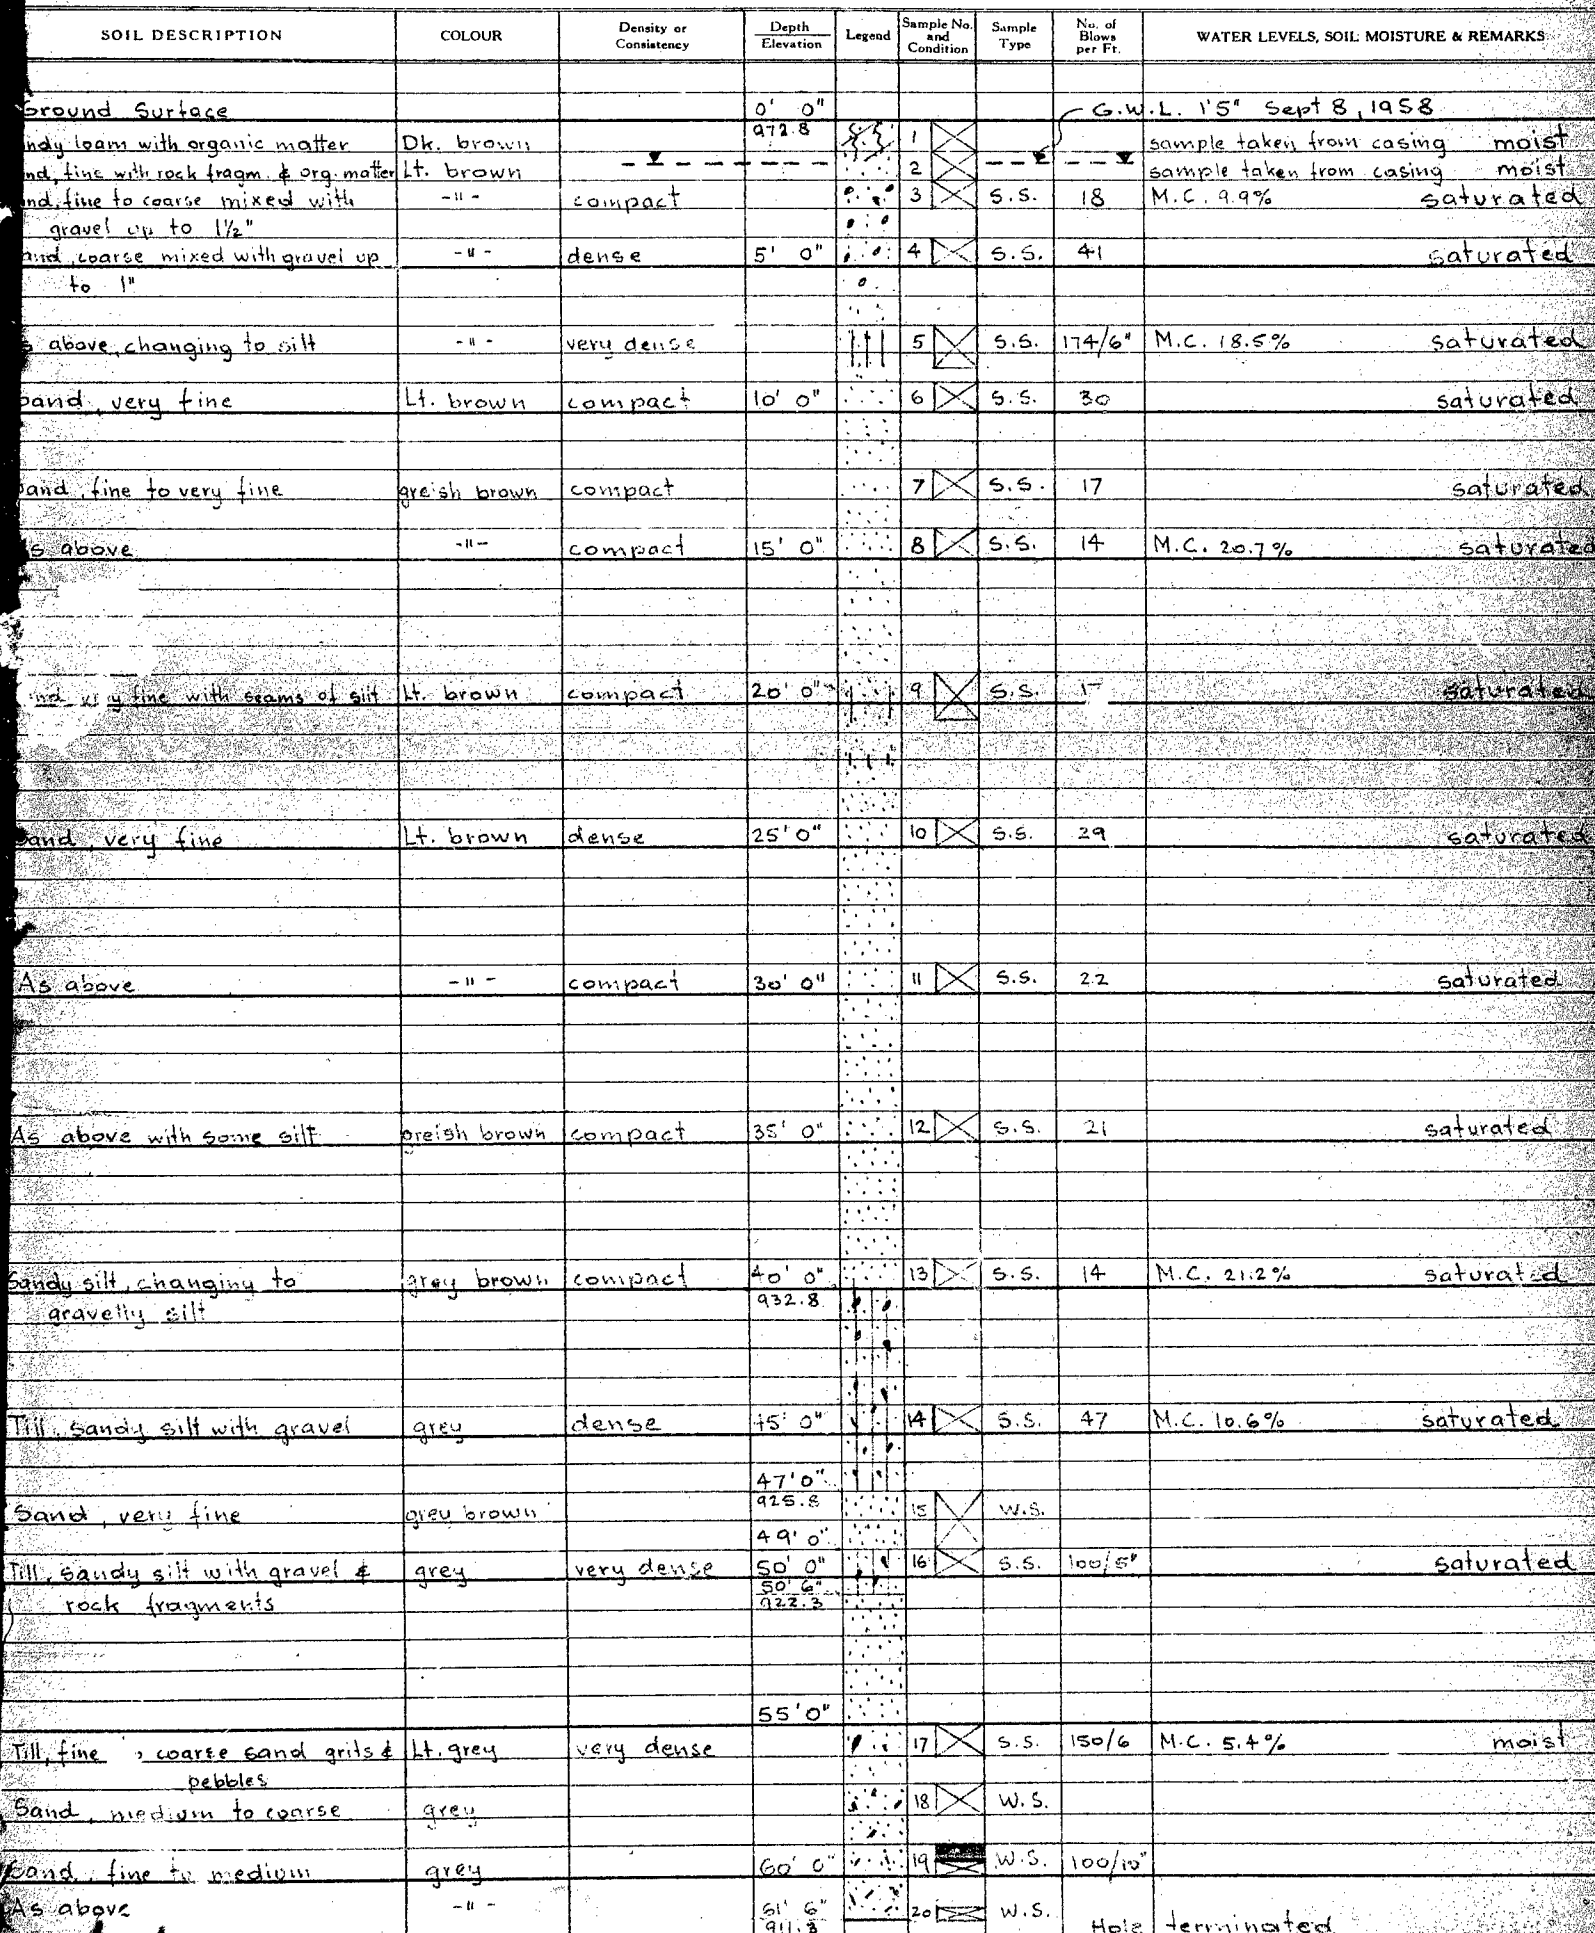 SOIL DESCRIPTION COLOUR Density or Consistency Depth Elevation Legend Sample No. and Condition Sample Type No. of Blows per Ft. WATER LEVELS, SOIL MOISTURE & REMARKS
Ground Surface 0' 0" G.W.L. 1'5" Sept 8, 1958
972.8
ndy loam with organic matter Dk. brown 1 sample taken from casing moist
nd, fine with rock fragm. & org. matter Lt. brown 2 sample taken from casing moist
nd, fine to coarse mixed with -"- compact 3 S.S. 18 M.C. 9.9% saturated
gravel up to 1½"
and, coarse mixed with gravel up -"- dense 5' 0" 4 S.S. 41 saturated
to 1"
s above, changing to silt -"- very dense 5 S.S. 174/6" M.C. 18.5% saturated
Sand, very fine Lt. brown compact 10' 0" 6 S.S. 30 saturated
and, fine to very fine greish brown compact 7 S.S. 17 saturated
s above -"- compact 15' 0" 8 S.S. 14 M.C. 20.7% saturated
nd very fine with seams of silt Lt. brown compact 20' 0" 9 S.S. saturated
Sand, very fine Lt. brown dense 25' 0" 10 S.S. 29 saturated
As above -"- compact 30' 0" 11 S.S. 22 saturated
As above with some silt greish brown compact 35' 0" 12 S.S. 21 saturated
Sandy silt, changing to grey brown compact 40' 0" 13 S.S. 14 M.C. 21.2% saturated
gravelly silt 932.8
Till, sandy silt with gravel grey dense 45' 0" 14 S.S. 47 M.C. 10.6% saturated
47' 0"
925.8
Sand, very fine grey brown 15 W.S.
49' 0"
Till, sandy silt with gravel & grey very dense 50' 0" 16 S.S. 100/5" saturated
50' 6"
rock fragments 922.3
55' 0"
Till, fine , coarse sand grits & Lt. grey very dense 17 S.S. 150/6 M.C. 5.4% moist
pebbles
Sand, medium to coarse grey 18 W.S.
Sand, fine to medium grey 60' 0" 19 W.S. 100/10"
As above -"- 61' 6" 20 W.S.
911.3 Hole terminated